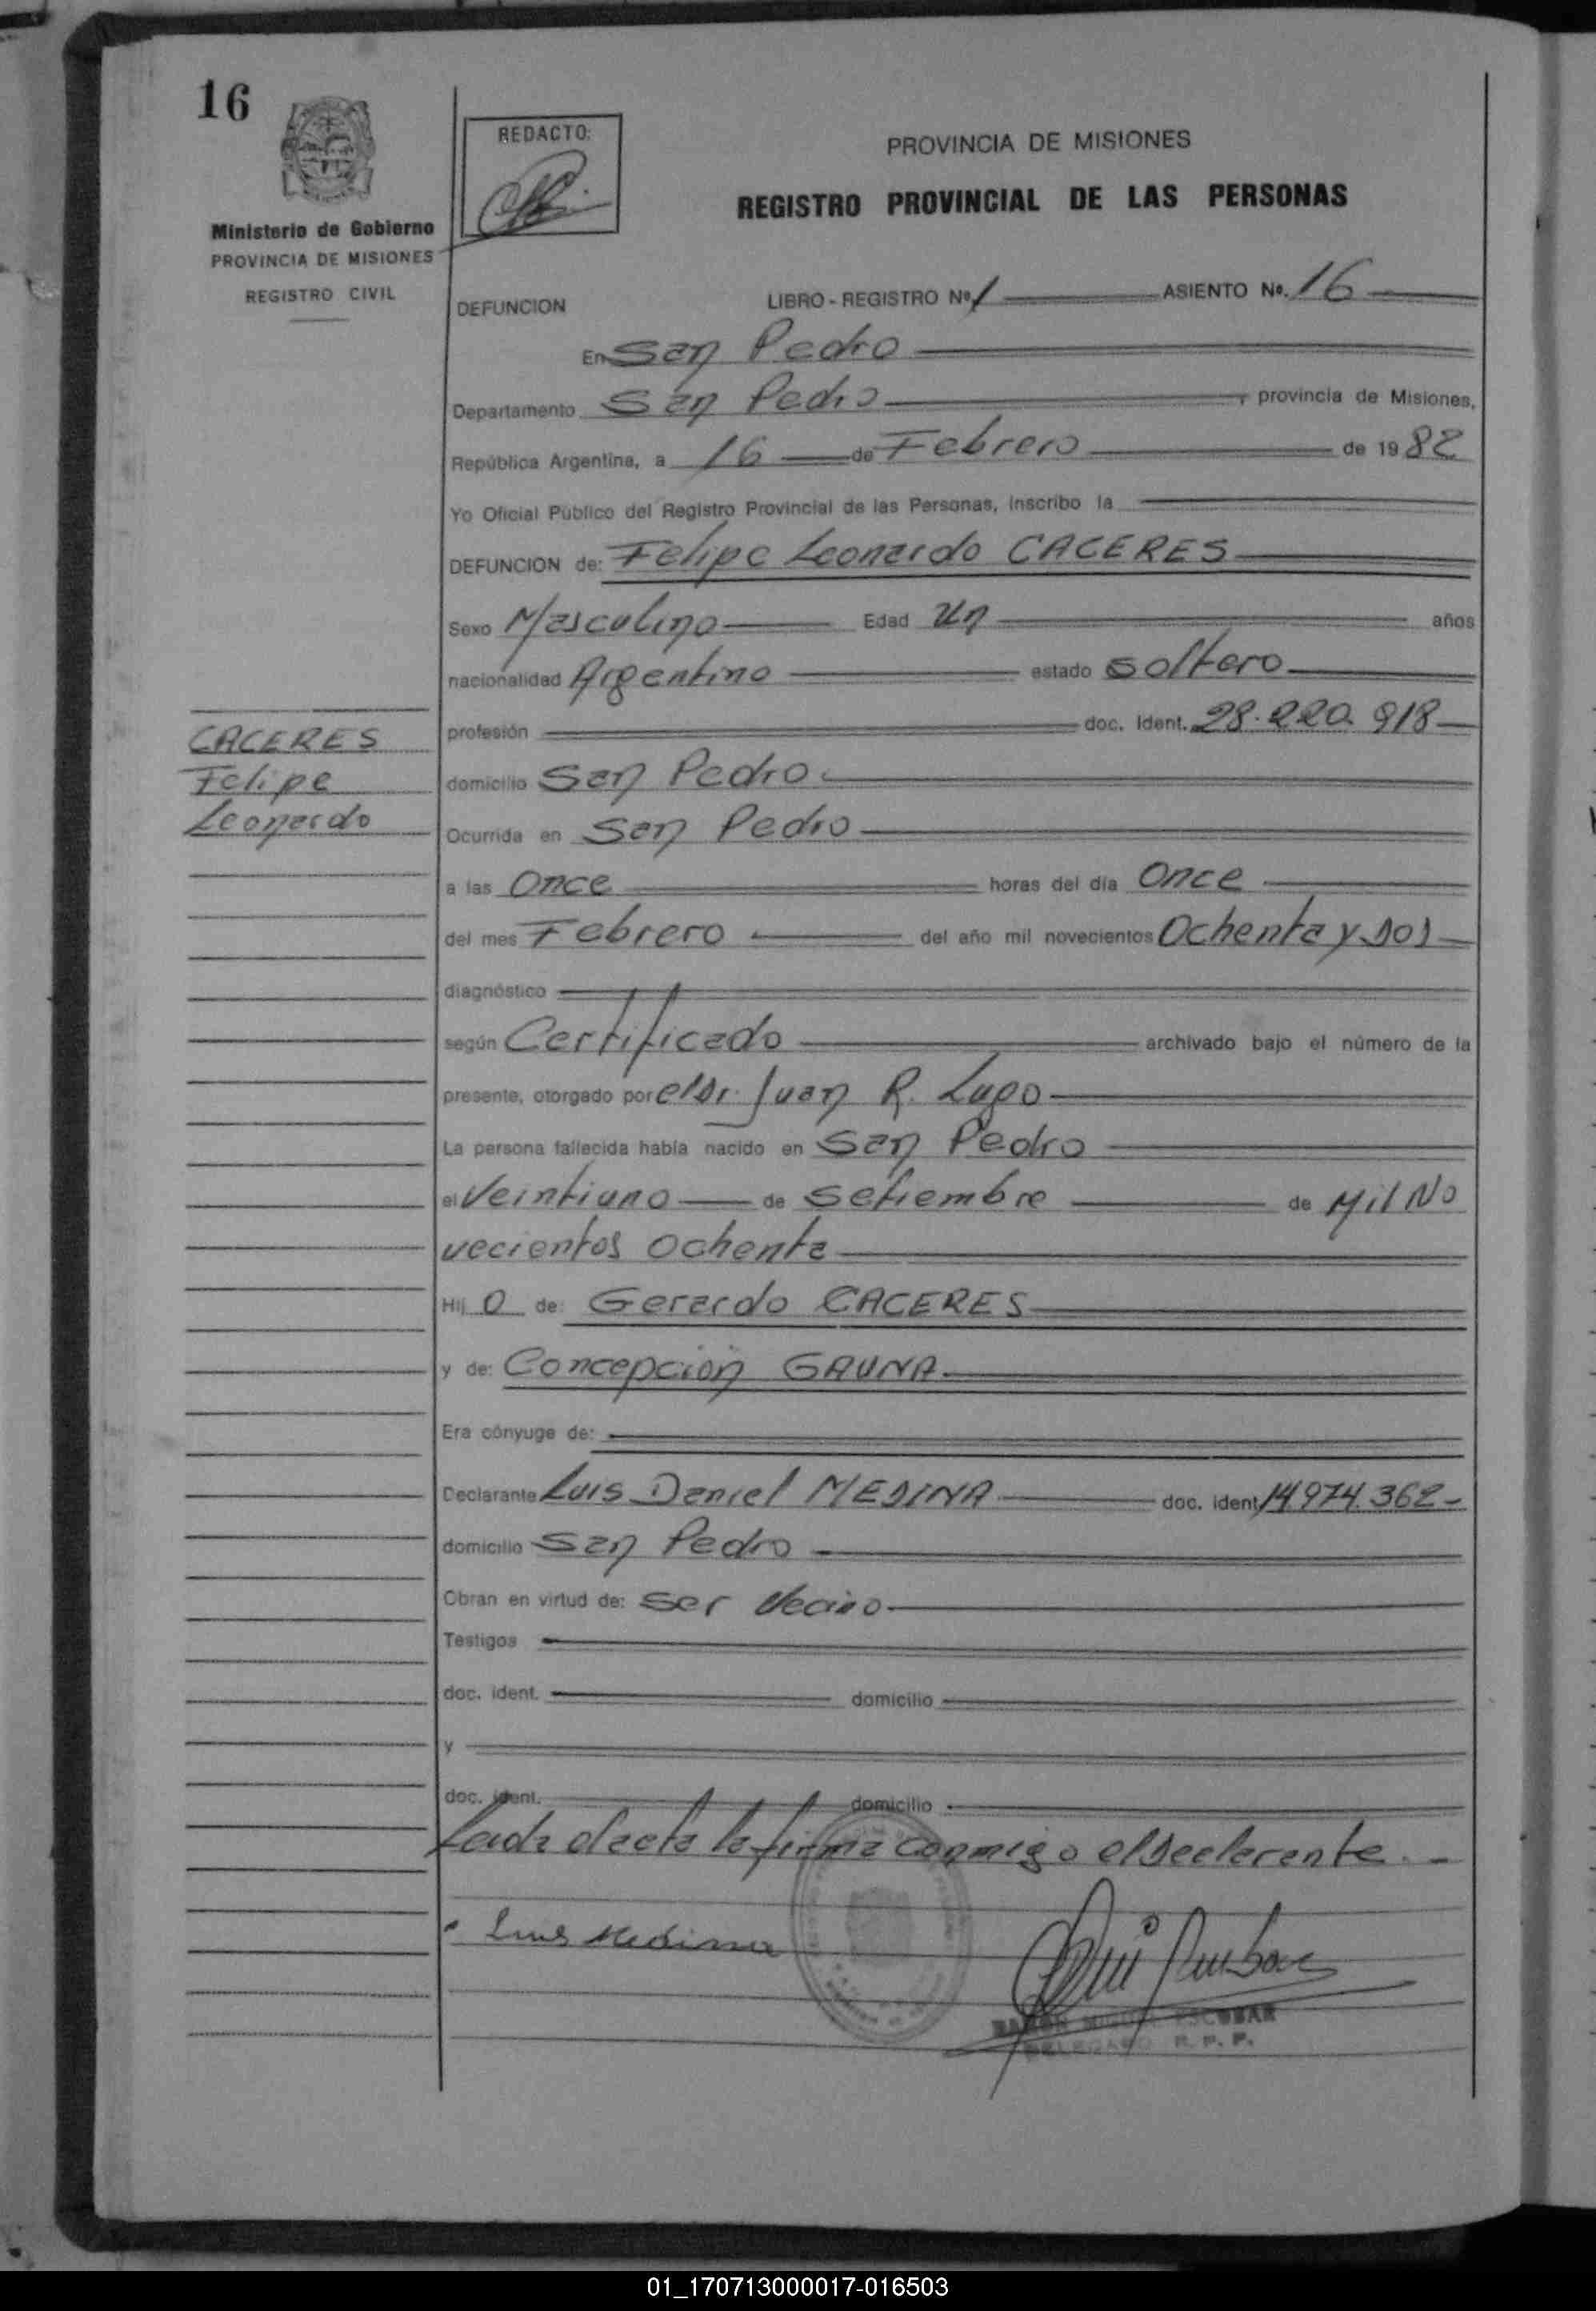 16
REDACTO:
PROVINCIA DE MISIONES
REGISTRO PROVINCIAL DE LAS PERSONAS
Ministerio de Gobierno
PROVINCIA DE MISIONES
REGISTRO CIVIL
DEFUNCION LIBRO - REGISTRO Nº 1 ASIENTO Nº. 16
En San Pedro
Departamento San Pedro, provincia de Misiones,
República Argentina, a 16 de Febrero de 1982
Yo Oficial Público del Registro Provincial de las Personas, inscribo la
DEFUNCION de: Felipe Leonardo CACERES
Sexo Masculino Edad Un años
nacionalidad Argentino estado soltero
profesión doc. ident. 28.220.918
CACERES
Felipe
Leonardo
domicilio San Pedro
Ocurrida en San Pedro
a las Once horas del día Once
del mes Febrero del año mil novecientos Ochenta y dos
diagnóstico
según Certificado archivado bajo el número de la
presente, otorgado por el Dr. Juan R. Lugo
La persona fallecida había nacido en San Pedro
el Veintiuno de Setiembre de Mil No
vecientos Ochenta
Hij o de: Gerardo CACERES
y de: Concepción GAUNA
Era cónyuge de:
Declarante Luis Daniel MEDINA doc. ident. 14.974.362
domicilio San Pedro
Obran en virtud de: ser Vecino
Testigos
doc. ident. domicilio
y
doc. ident. domicilio
Leida el acta la firma conmigo el declarante.
Luis Medina
RAMON MIGUEL ESCOBAR
DELEGADO R. P. P.
01_170713000017-016503